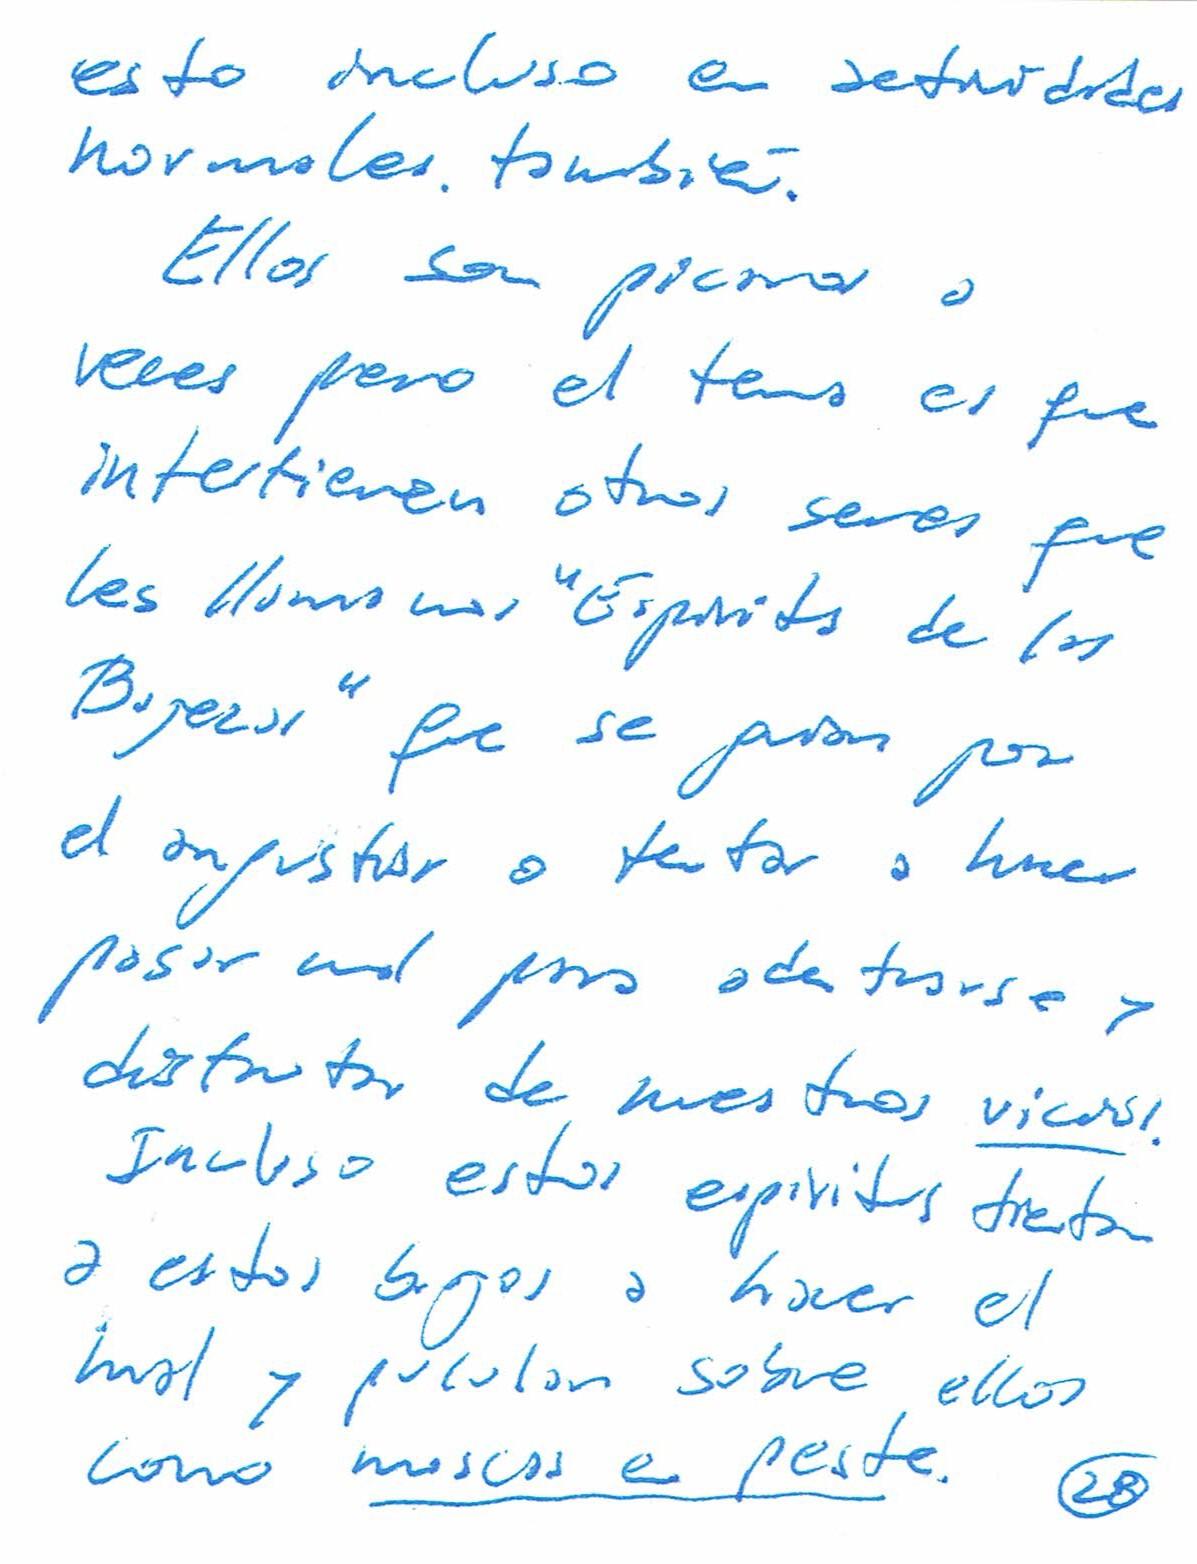 esto incluso en actividades
normales. también.
Ellos son picaros a
veces pero el tema es que
intertienen otros seres que
les llamamos "Espiritus de las
Bajezas" que se guian por
el angustiar o tentar a hacer
pasar mal para adentrarse y
disfrutar de nuestros vicios.
Incluso estos espiritus tientan
a estos bajos a hacer el
mal y pululan sobre ellos
como moscas en peste.
28